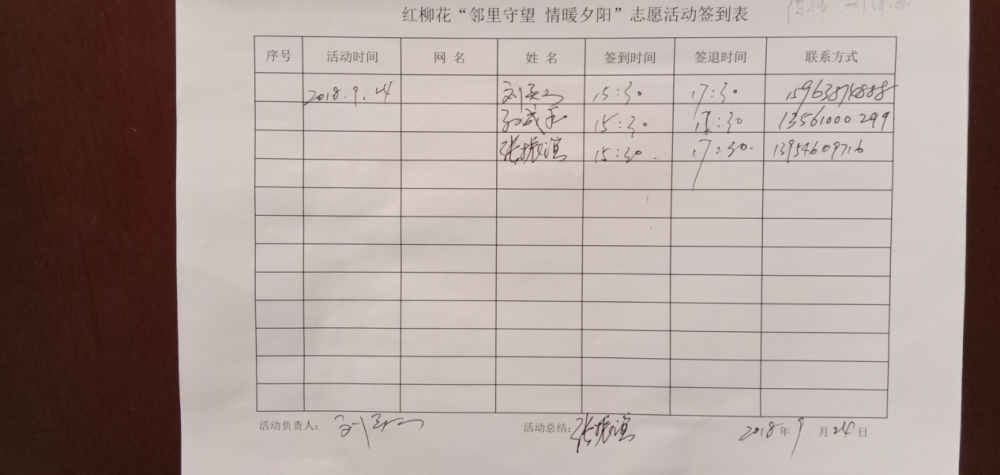 红柳花“邻里守望 情暖夕阳”志愿活动签到表
序号 活动时间 网 名 姓 名 签到时间 签退时间 联系方式
2018.9.24 15:30 17:30 15963874888
15:30 17:30 13561000299
张振滨 15:30. 17:30. 13954609716
活动负责人： 活动总结：张振滨 2018年9月24日